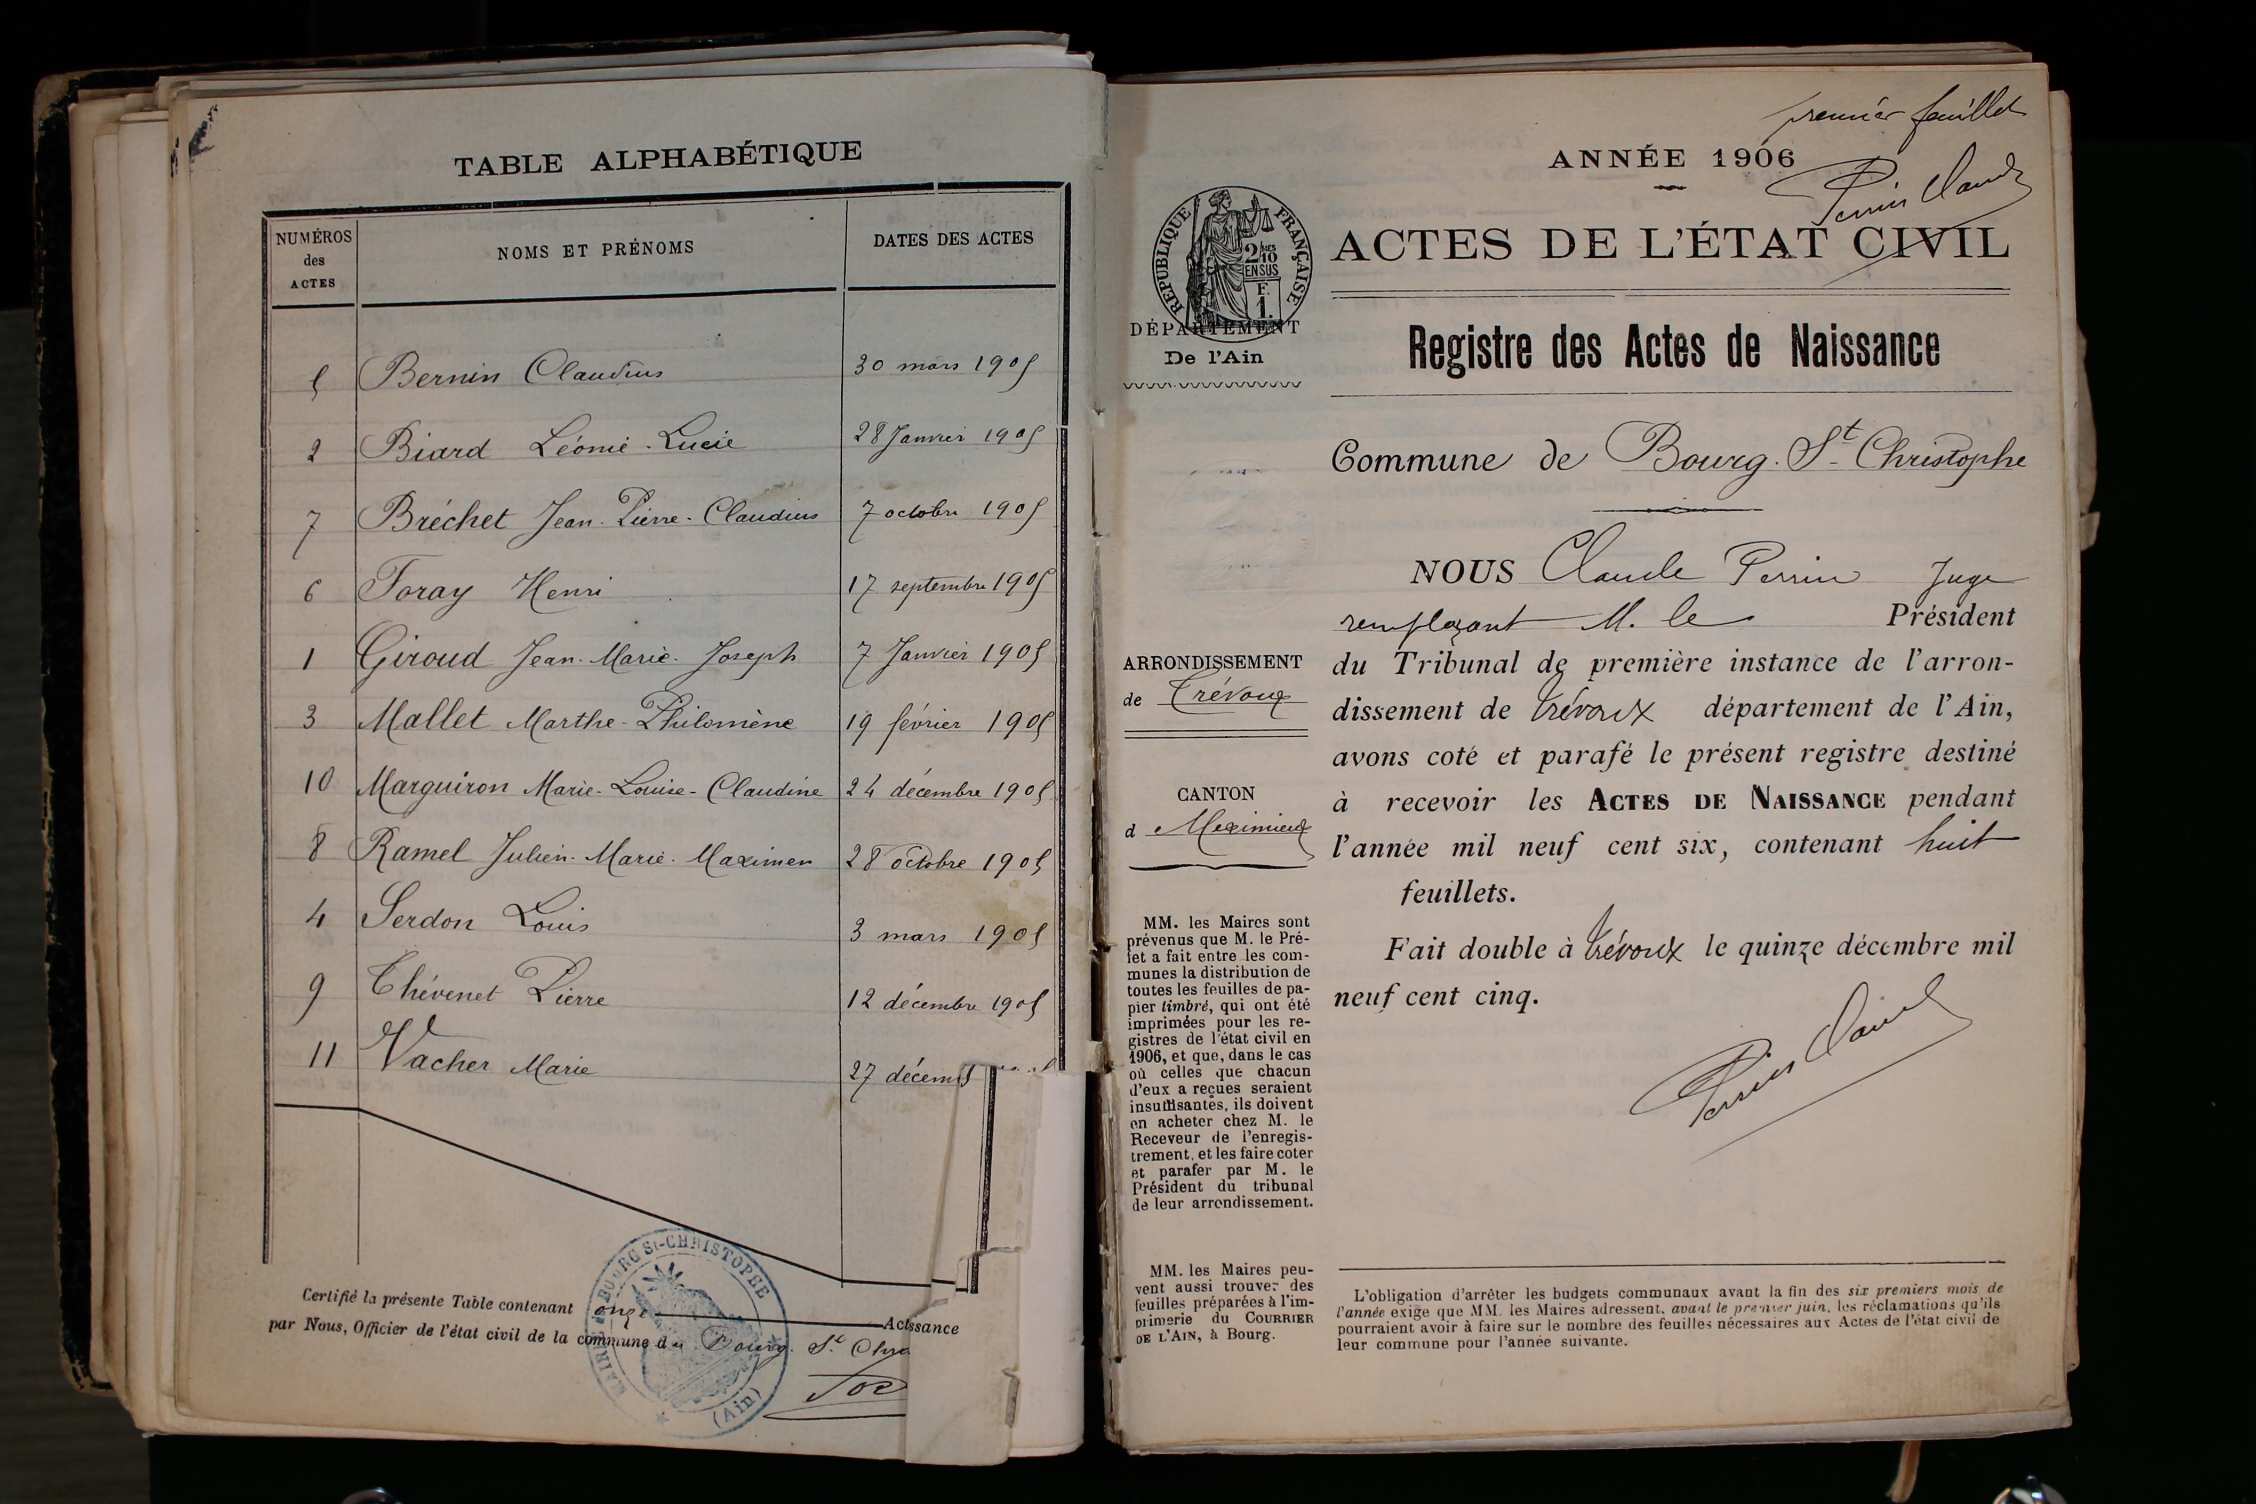 TABLE ALPHABÉTIQUE
NUMÉROS
des
ACTES
NOMS ET PRÉNOMS
DATES DES ACTES
5 Bernin Claudius 30 mars 1905
2 Biard Léonie-Lucie 28 Janvier 1905
7 Bréchet Jean-Pierre-Claudius 7 octobre 1905
6 Foray Henri 17 septembre 1905
1 Giroud Jean-Marie-Joseph 7 Janvier 1905
3 Mallet Marthe-Philomène 19 février 1905
10 Marguiron Marie-Louise-Claudine 24 décembre 1905
8 Ramel Julien-Marie-Maximen 28 octobre 1905
4 Serdon Louis 3 mars 1905
9 Thévenet Pierre 12 décembre 1905
11 Vacher Marie 27 décem
Certifié la présente Table contenant onze Actes
par Nous, Officier de l'état civil de la commune de Bourg. St Chr
MAIRIE BOURG St-CHRISTOPHE
(Ain)
ssance
premier feuillet
Perrin Claude
ANNÉE 1906
ACTES DE L'ÉTAT CIVIL
RÉPUBLIQUE FRANÇAISE
2/10
EN SUS
F.
1.
DÉPARTEMENT
De l'Ain
Registre des Actes de Naissance
Commune de Bourg. St Christophe
NOUS Claude Perrin Juge
remplaçant M. le Président
du Tribunal de première instance de l'arron-
dissement de Trévoux département de l'Ain,
avons coté et parafé le présent registre destiné
à recevoir les ACTES DE NAISSANCE pendant
l'année mil neuf cent six, contenant huit
feuillets.
Fait double à Trévoux le quinze décembre mil
neuf cent cinq.
Perrin Claude
ARRONDISSEMENT
de Trévoux
CANTON
d Meximieux
MM. les Maires sont
prévenus que M. le Pré-
fet a fait entre les com-
munes la distribution de
toutes les feuilles de pa-
pier timbré, qui ont été
imprimées pour les re-
gistres de l'état civil en
1906, et que, dans le cas
où celles que chacun
d'eux a reçues seraient
insuffisantes, ils doivent
en acheter chez M. le
Receveur de l'enregis-
trement, et les faire coter
et parafer par M. le
Président du tribunal
de leur arrondissement.
MM. les Maires peu-
vent aussi trouver des
feuilles préparées à l'im-
primerie du COURRIER
DE L'AIN, à Bourg.
L'obligation d'arrêter les budgets communaux avant la fin des six premiers mois de
l'année exige que MM. les Maires adressent, avant le premier juin, les réclamations qu'ils
pourraient avoir à faire sur le nombre des feuilles nécessaires aux Actes de l'état civil de
leur commune pour l'année suivante.